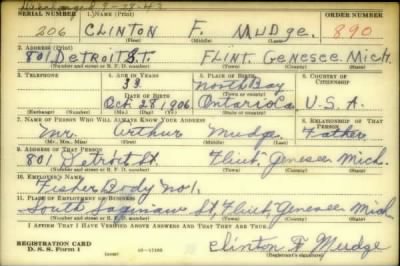 Discharged 9-28-43
SERIAL NUMBER 1. NAME (Print) ORDER NUMBER
206 CLINTON F. MUDGE. 890
(First) (Middle) (Last)
2. ADDRESS (Print)
801 DETROIT ST. FLINT, GENESEE MICH.
(Number and street or R. F. D. number) (Town) (County) (State)
3. TELEPHONE 4. AGE IN YEARS 5. PLACE OF BIRTH 6. COUNTRY OF CITIZENSHIP
North Bay
DATE OF BIRTH
Oct 28 1906 Ontario Ca. U.S.A.
(Exchange) (Number) (Mo.) (Day) (Yr.) (State or country)
7. NAME OF PERSON WHO WILL ALWAYS KNOW YOUR ADDRESS 8. RELATIONSHIP OF THAT PERSON
Mr. Arthur Mudge. Father
(Mr., Mrs., Miss) (First) (Middle) (Last)
9. ADDRESS OF THAT PERSON
801 Detroit St. Flint, Genesee Mich.
(Number and street or R. F. D. number) (Town) (County) (State)
10. EMPLOYER'S NAME
Fisher Body No 1.
11. PLACE OF EMPLOYMENT OR BUSINESS
South Saginaw St, Flint, Genesee Mich
(Number and street or R. F. D. number) (Town) (County) (State)
I AFFIRM THAT I HAVE VERIFIED ABOVE ANSWERS AND THAT THEY ARE TRUE.
REGISTRATION CARD
D. S. S. Form 1
Clinton F Mudge
(Registrant's signature)